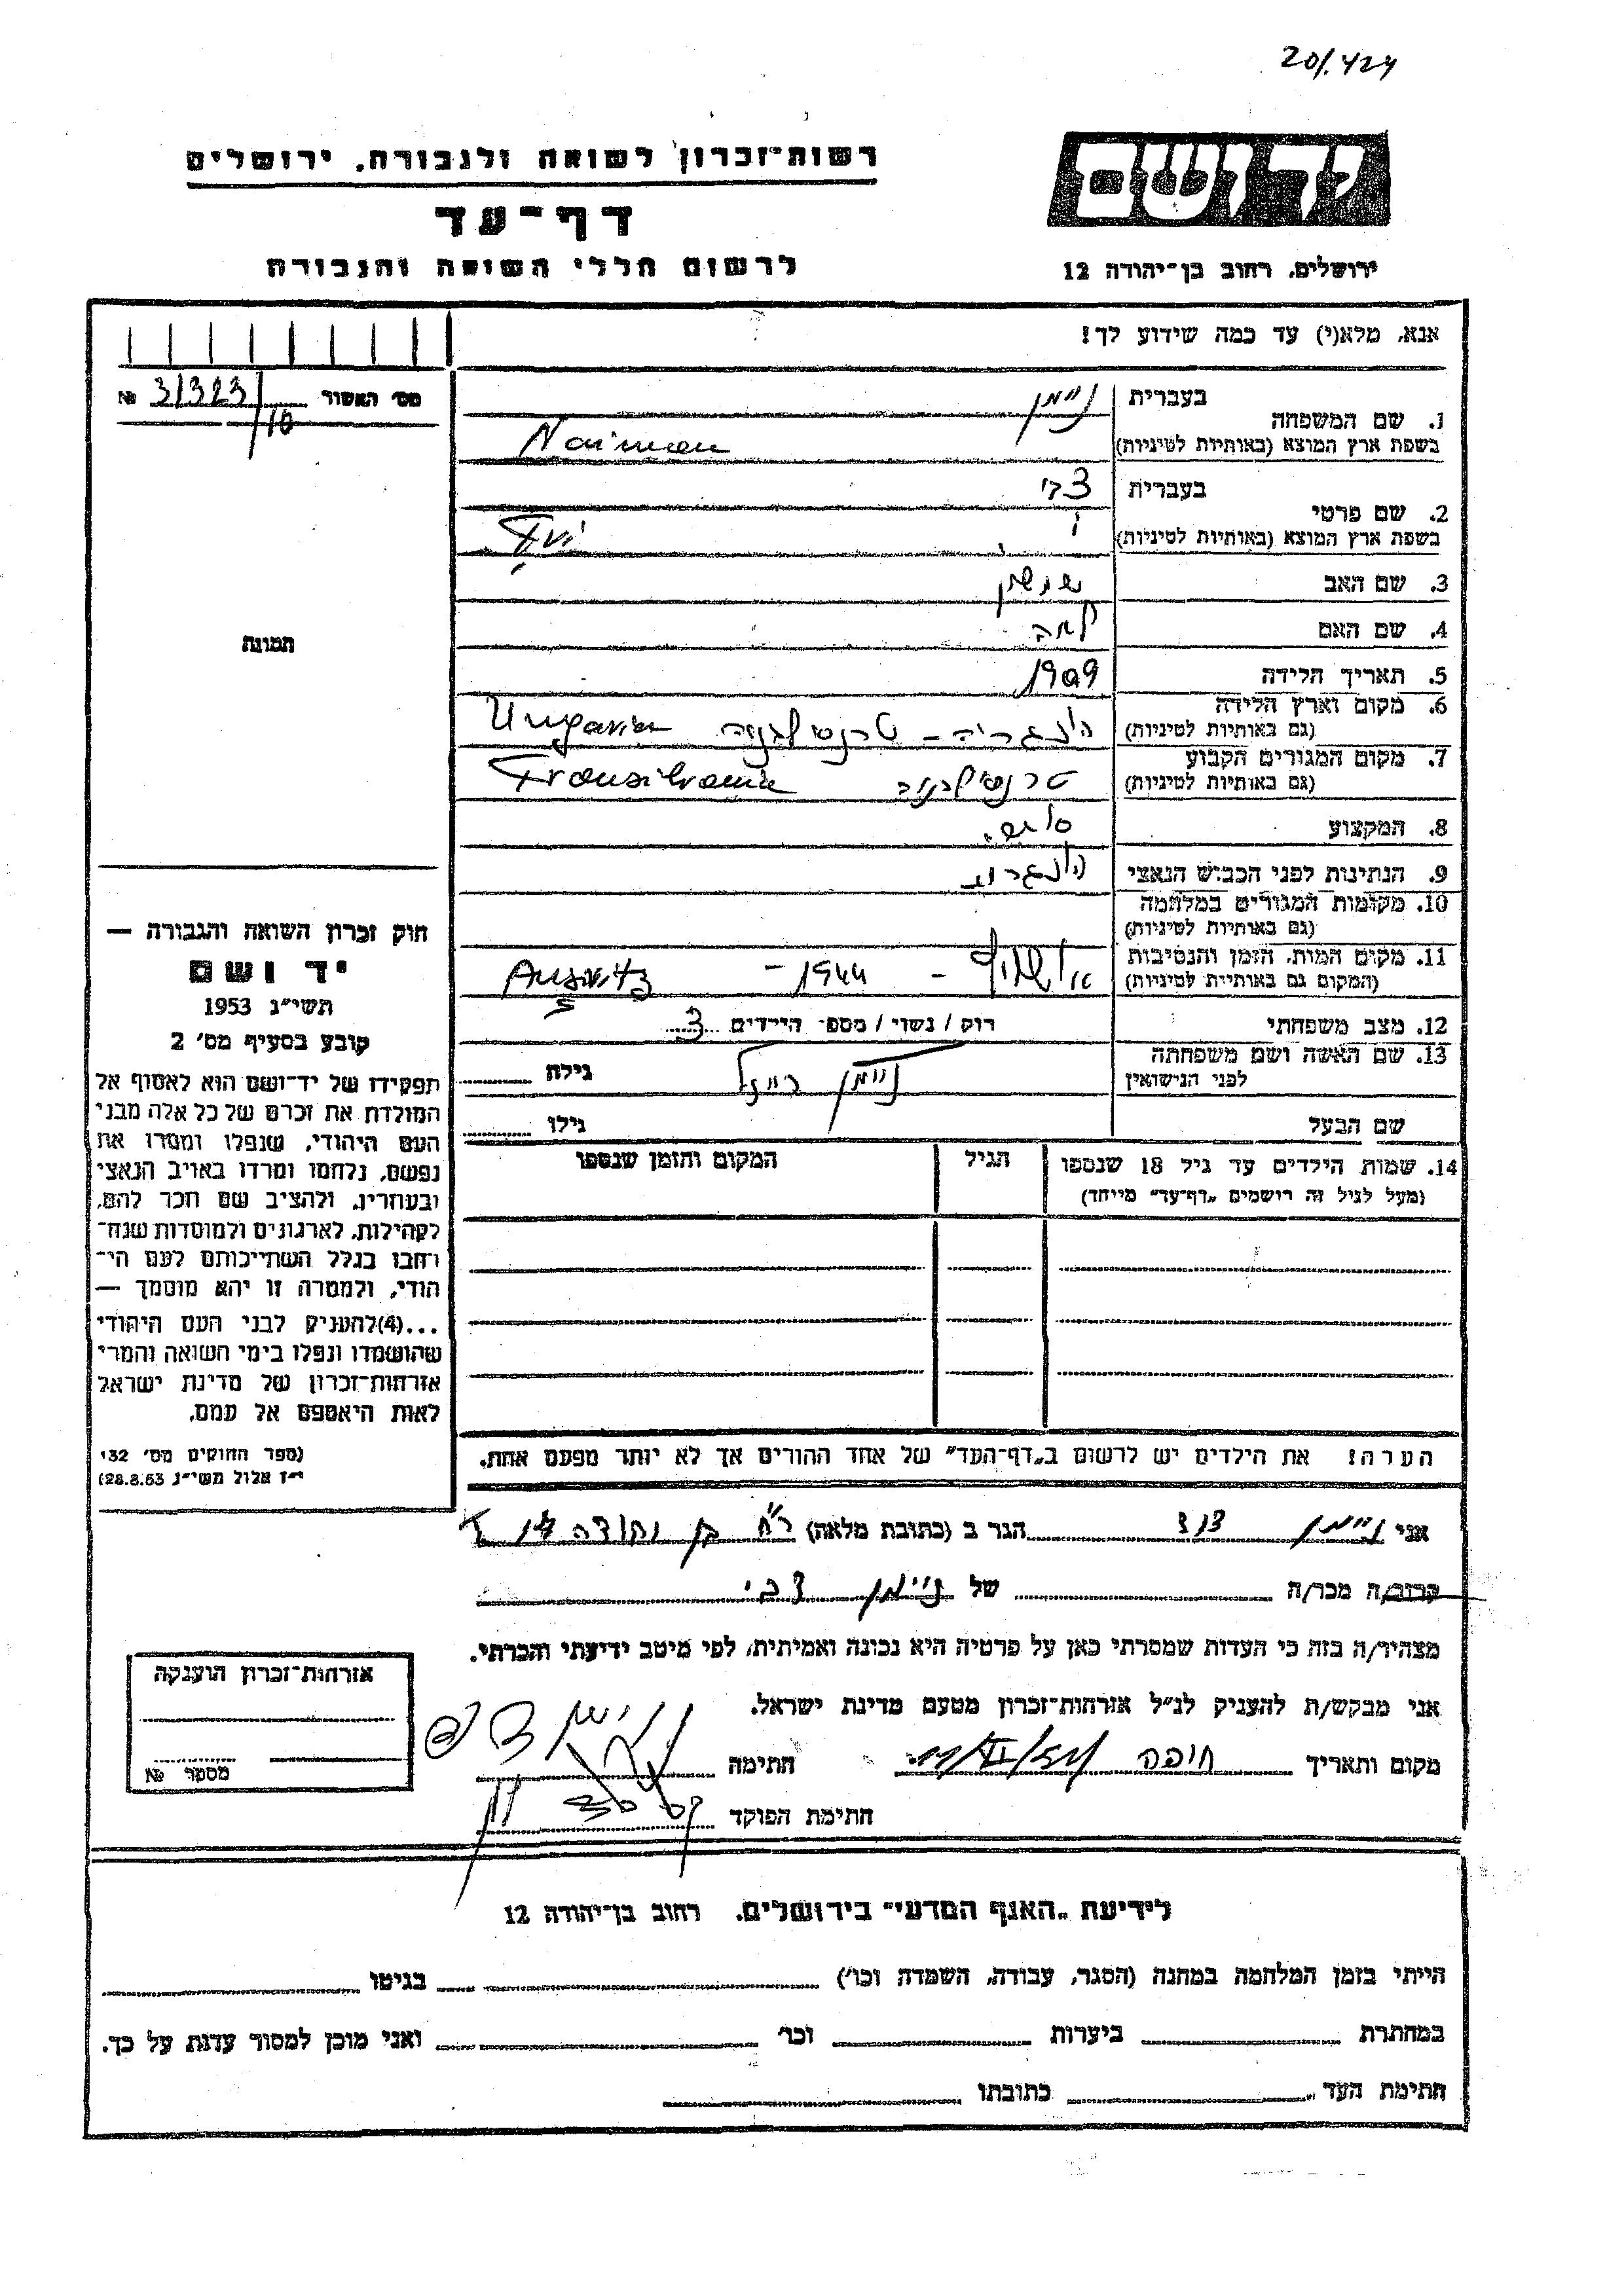 20/.424
רשות־זכרון לשואה ולגבורה, ירושלים
דף־עד
לרשום חללי השואה והגבורה
יד ושם
ירושלים, רחוב בן־יהודה 12
אנא, מלא(י) עד כמה שידוע לך!
מס׳ האשור 31323/10 №
1. שם המשפחה בעברית ניימן
בשפת ארץ המוצא (באותיות לטיניות) Naiman
2. שם פרטי בעברית צבי
בשפת ארץ המוצא (באותיות לטיניות)
3. שם האב שמשון
4. שם האם
5. תאריך הלידה 1909
6. מקום וארץ הלידה הונגריה – טרנסילבניה Ungaria
(גם באותיות לטיניות)
7. מקום המגורים הקבוע טרנסילבניה Transilvania
(גם באותיות לטיניות)
8. המקצוע
9. הנתינות לפני הכבוש הנאצי
10. מקומות המגורים במלחמה
(גם באותיות לטיניות)
11. מקום המות, הזמן והנסיבות אושוויץ – 1944 –
(המקום גם באותיות לטיניות)
12. מצב משפחתי רוק / נשוי / מספ׳ הילדים 3
13. שם האשה ושם משפחתה ניימן גילה
לפני הנישואין
שם הבעל גילו
14. שמות הילדים עד גיל 18 שנספו הגיל המקום והזמן שנספו
(מעל לגיל זה רושמים „דף־עד” מייחד)
הערה! את הילדים יש לרשום ב„דף־העד” של אחד ההורים אך לא יותר מפעם אחת.
תמונה
חוק זכרון השואה והגבורה —
יד ושם
תשי״ג 1953
קובע בסעיף מס׳ 2
תפקידו של יד־ושם הוא לאסוף אל
המולדת את זכרם של כל אלה מבני
העם היהודי, שנפלו ומסרו את
נפשם, נלחמו ומרדו באויב הנאצי
ובעוזריו, ולהציב שם וזכר להם,
לקהילות, לארגונים ולמוסדות שנח־
רחבו בגלל השתייכותם לעם הי־
הודי, ולמטרה זו יהא מוסמך —
...(4)להעניק לבני העם היהודי
שהושמדו ונפלו בימי השואה והמרי
אזרחות־זכרון של מדינת ישראל
לאות היאספם אל עמם.
(ספר החוקים מס׳ 132
י״ז אלול תשי״ג 28.8.53)
אני ניימן הגר ב (כתובת מלאה) רח׳ בן יהודה
קרוב/ה מכר/ה של ניימן צבי
מצהיר/ה בזה כי העדות שמסרתי כאן על פרטיה היא נכונה ואמיתית, לפי מיטב ידיעתי והכרתי.
אני מבקש/ת להעניק לנ״ל אזרחות־זכרון מטעם מדינת ישראל.
מקום ותאריך חיפה חתימה
חתימת הפוקד
אזרחות־זכרון הוענקה
מספר №
לידיעת „האגף המדעי” בירושלים. רחוב בן־יהודה 12
הייתי בזמן המלחמה במחנה (הסגר, עבודה, השמדה וכו׳) בגיטו
במחתרת ביערות וכו׳ ואני מוכן למסור עדות על כך.
חתימת העד כתובתו